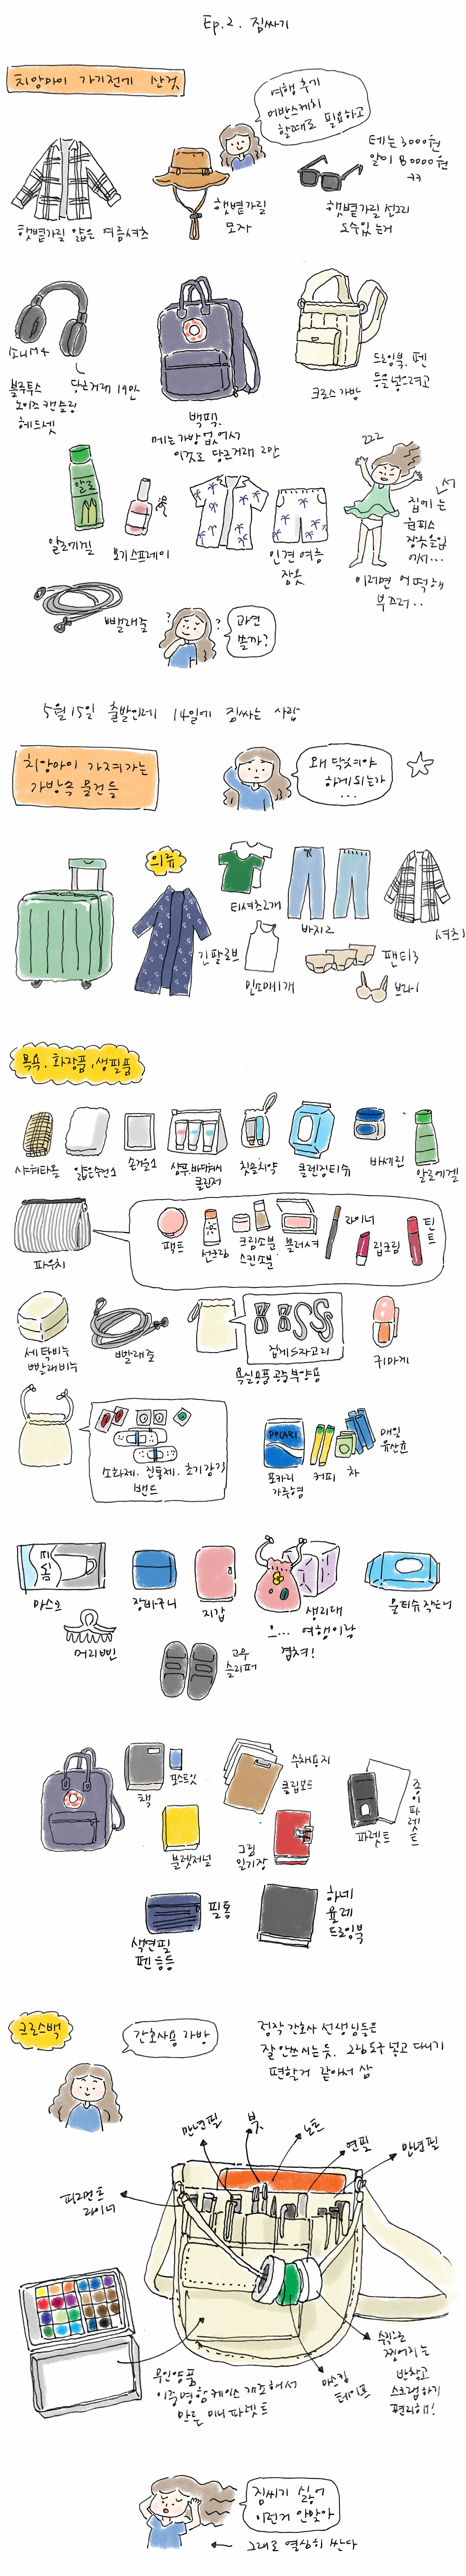 Ep.2. 짐싸기
치앙마이 가기전에 산것
여행 후기
어반스케치
할때로 필요하고
테는 3000원
알이 80000원
ㅋㅋ
햇볕가릴 얇은 여름셔츠
햇볕가릴
모자
햇볕가릴 선그리
도수있는거
소니M4
블루투스
노이즈캔슬링
헤드셋
당근거래 19만
백팩.
메는가방 없어서
이것로 당근거래 2만
크로스가방
드로잉북, 펜
등을넣으려고
알로
알로에겔
모기스프레이
인견여름
잠옷
ㄹㄹㄹ
집에는
원피스
잠옷뿐입
어서...
이러면 어떡해
부끄러..
빨래줄
? ?
과연
쓸까?
5월15일 출발인데 14일에 짐싸는 사람
치앙마이 가져가는
가방속 물건들
왜 닥쳐야
하게되는가
...
의류
티셔츠2개
바지2
셔츠1
긴팔로브
민소매1개
팬티3
브라1
목욕, 화장품, 생필품
샤워타올
얇은수건2
손거울2
샴푸,바디워시
클린저
칫솔치약
클렌징티슈
바세린
알로에겔
파우치
팩트
선크림
크림소분
스킨소분
블러셔
라이너
립크림
틴트
세탁비누
빨래비누
빨래줄
집게S자고리
욕실용품 공중부양용
귀마개
소화제. 진통제. 초기감기
밴드
POCARI
포카리
가루형
커피
차
매일
유산균
마스크
장바구니
지갑
생리대
으... 여행이랑
겹쳐!
물티슈작은거
머리삔
고무
슬리퍼
책
포스트잇
수채용지
클립보드
불렛저널
그림
일기장
파렛트
종이파렛트
필통
색연필
펜등등
하네
뮬레
드로잉북
크로스백
간호사용 가방
정작 간호사 선생님들은
잘안쓰시는듯. 그림도구 넣고 다니기
편할거 같아서 삼
만년필
붓
노트
연필
만년필
피그먼트
라이너
무인양품
이중명함케이스 개조해서
만든 미니파렛트
마스킹
테이프
손으로
찢어지는
반창고
스크랩하기
편리해!
짐싸기 싫어
이런거 안맞아
그래도 열심히 싼다